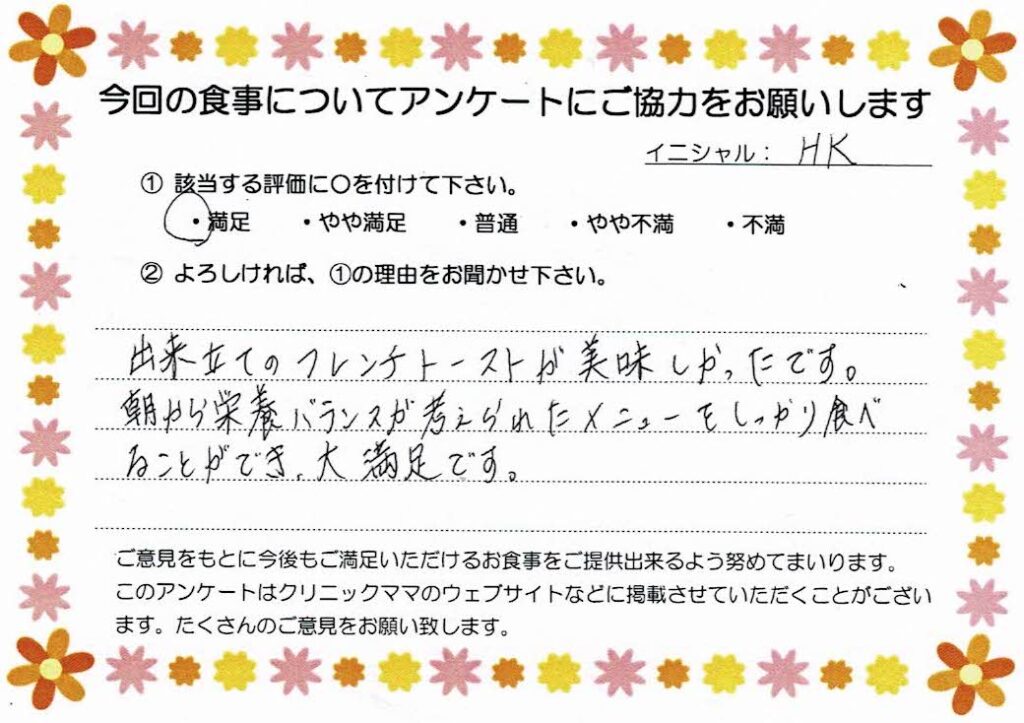 今回の食事についてアンケートにご協力をお願いします
イニシャル： HK
① 該当する評価に〇を付けて下さい。
・満足 ・やや満足 ・普通 ・やや不満 ・不満
② よろしければ、①の理由をお聞かせ下さい。
出来立てのフレンチトーストが美味しかったです。
朝から栄養バランスが考えられたメニューをしっかり食べ
ることができ、大満足です。
ご意見をもとに今後もご満足いただけるお食事をご提供出来るよう努めてまいります。
このアンケートはクリニックママのウェブサイトなどに掲載させていただくことがござい
ます。たくさんのご意見をお願い致します。